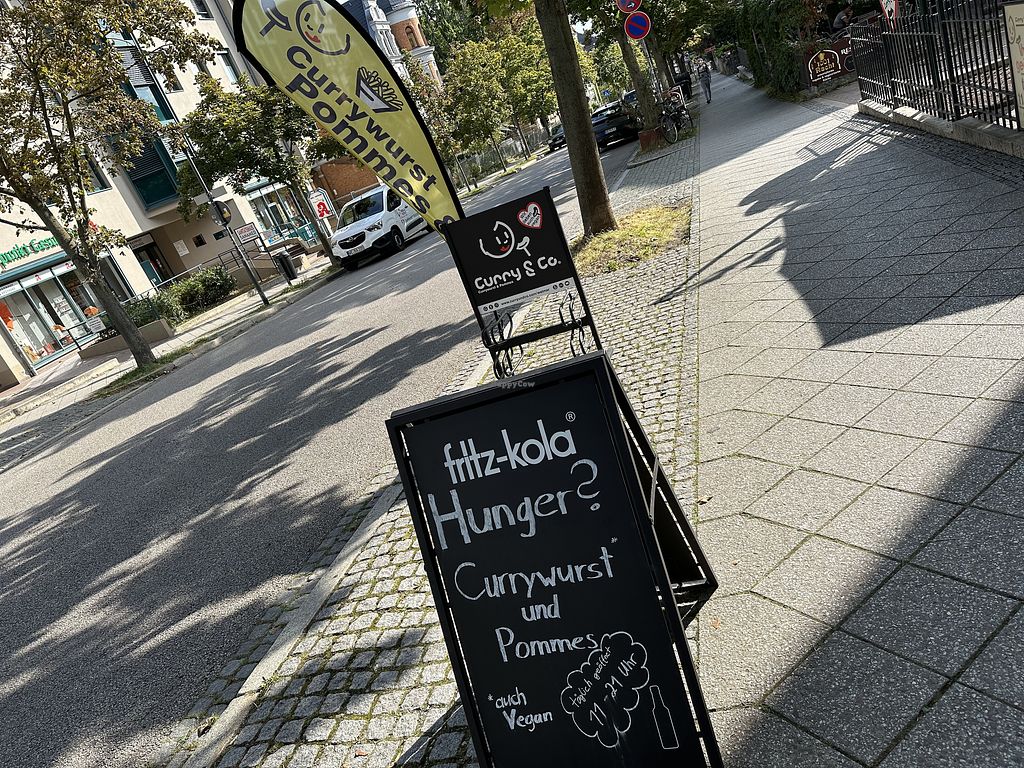 Currywurst
Pommes &
Curry & Co.
Currywurst & Pommes
fritz-kola®
Hunger?
Currywurst*
und
Pommes
*auch
Vegan
täglich geöffnet
11-21 Uhr
HappyCow